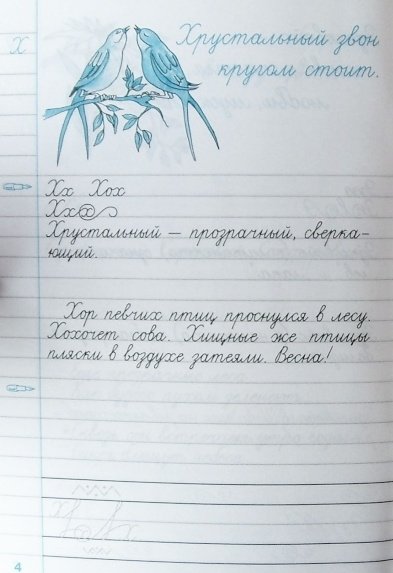 Х
Хрустальный звон
кругом стоит.
Хх Хох
Ххх
Хрустальный — прозрачный, сверка-
ющий.
Хор певчих птиц проснулся в лесу.
Хохочет сова. Хищные же птицы
пляски в воздухе затеяли. Весна!
4